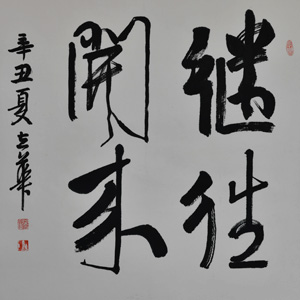 继往
開来
辛丑夏立華